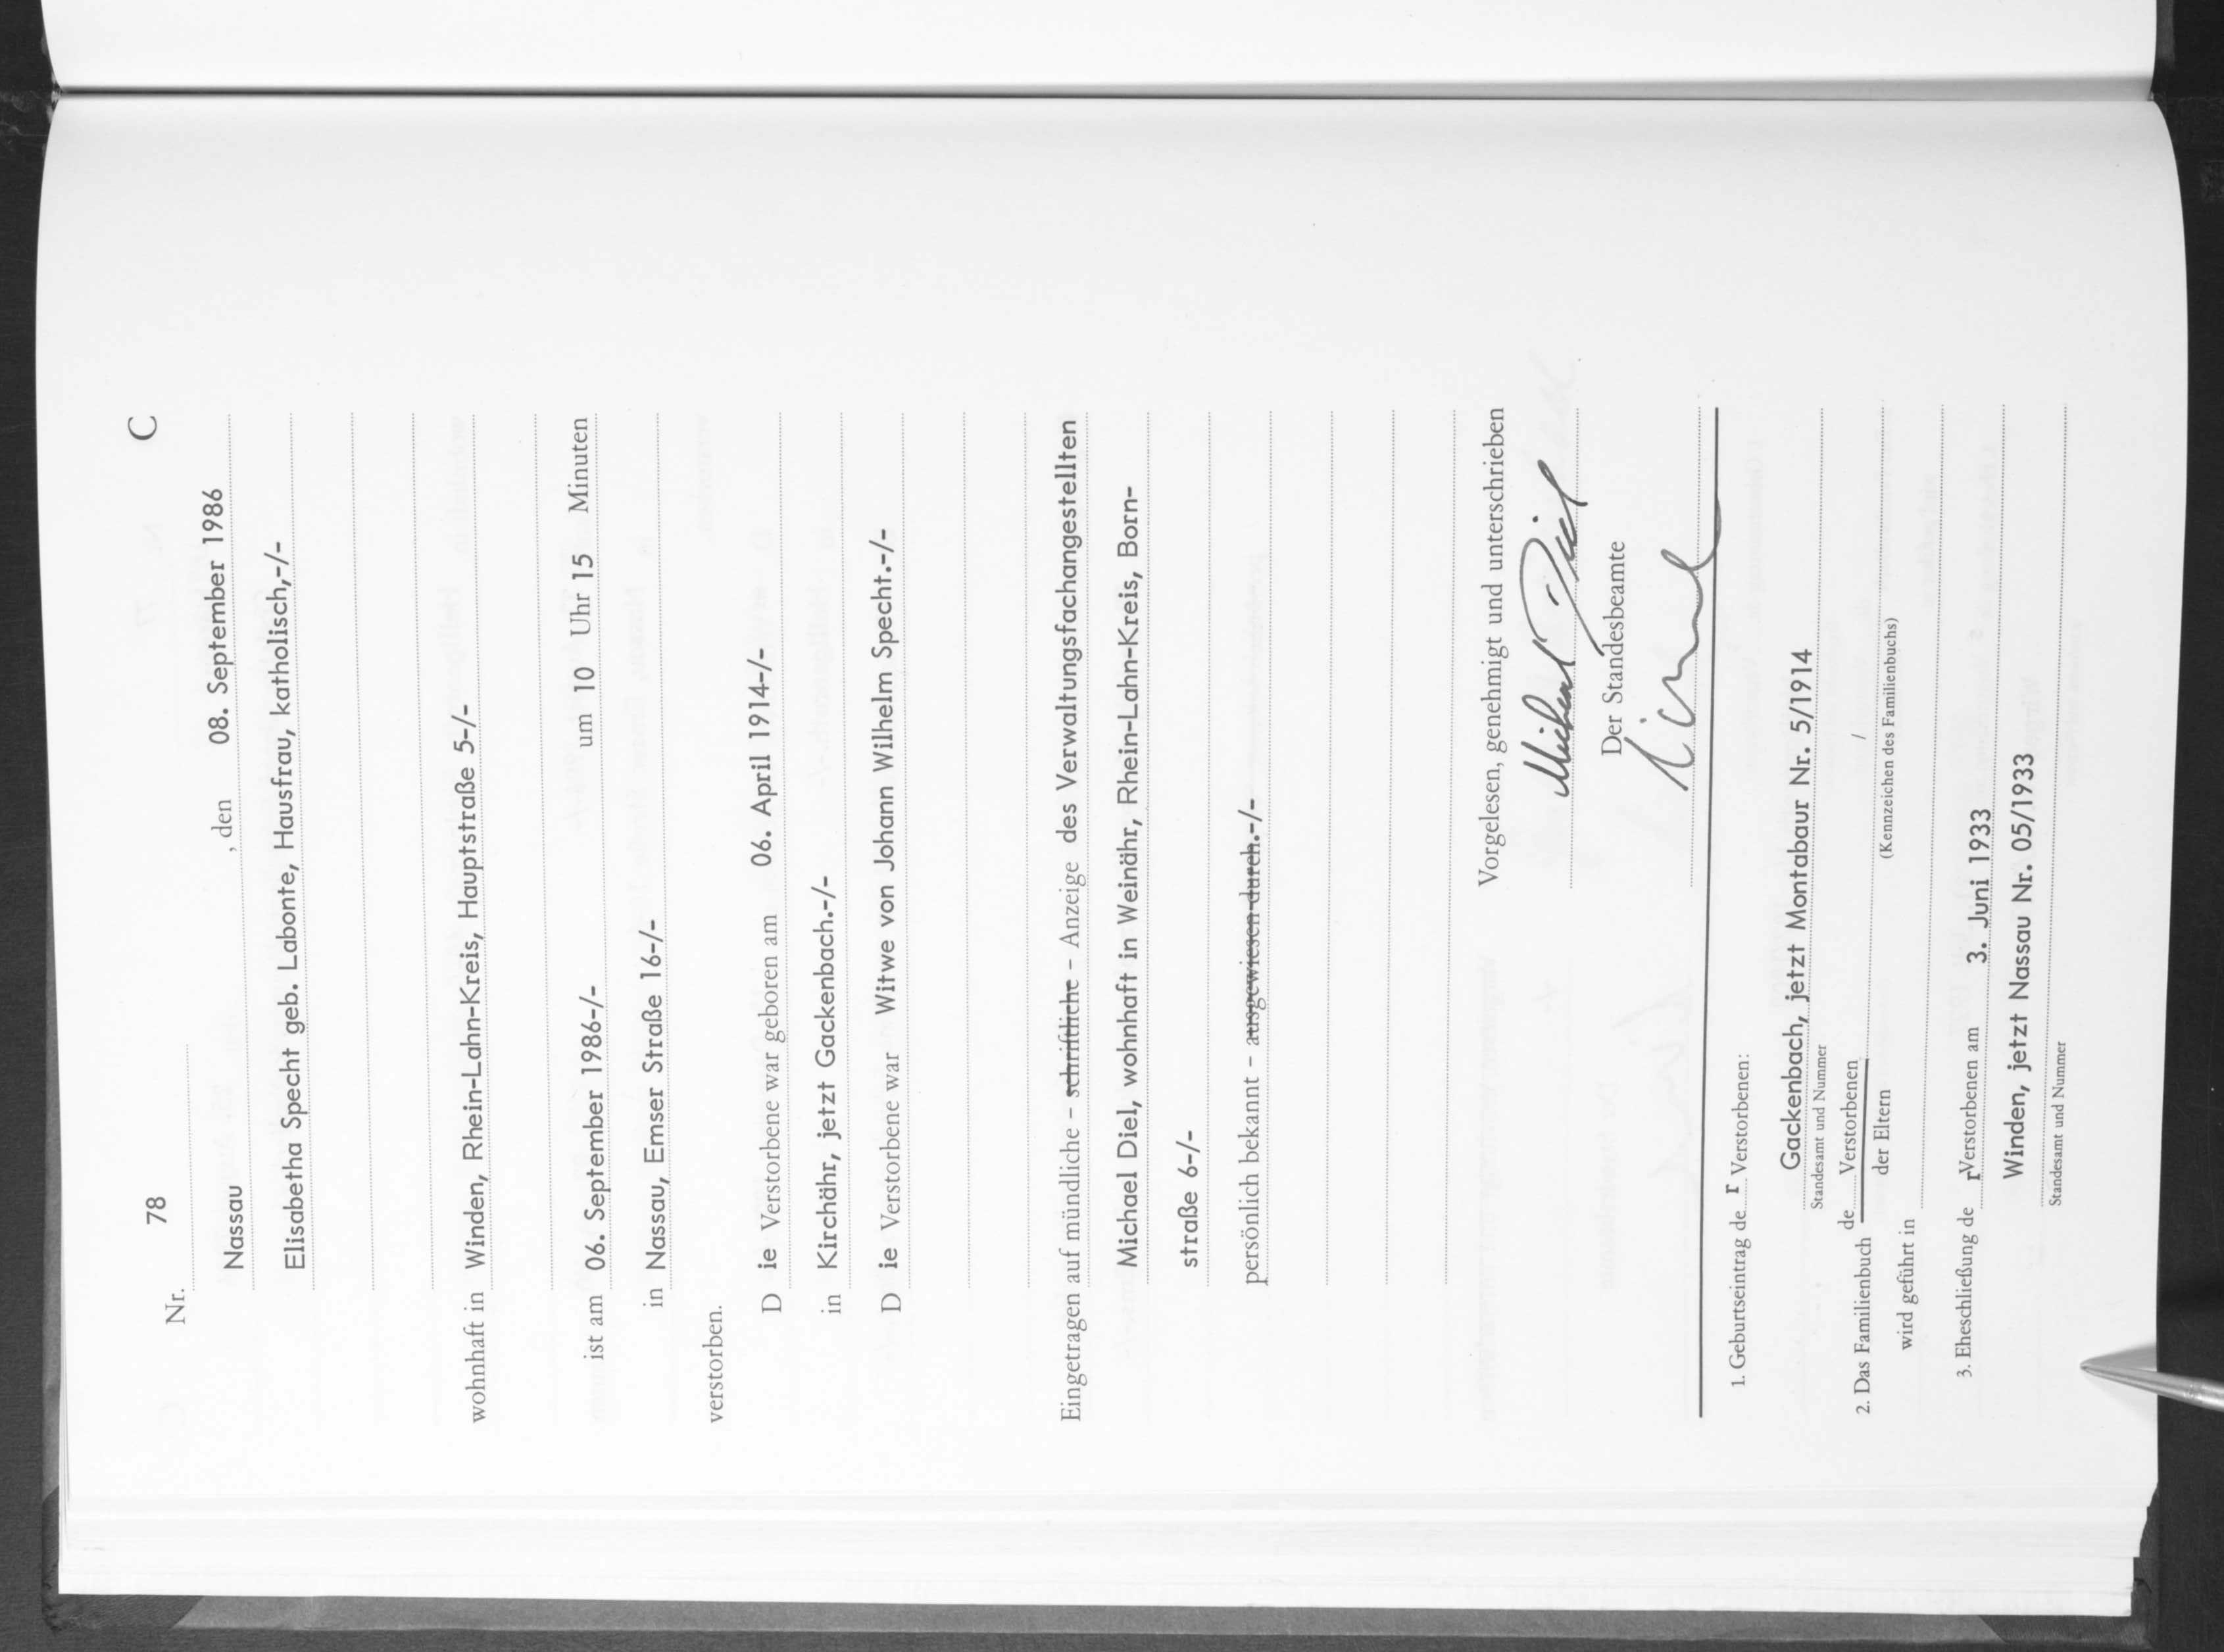 C
Nr. 78
Nassau , den 08. September 1986
Elisabetha Specht geb. Labonte, Hausfrau, katholisch,-/-
wohnhaft in Winden, Rhein-Lahn-Kreis, Hauptstraße 5-/-
ist am 06. September 1986-/- um 10 Uhr 15 Minuten
in Nassau, Emser Straße 16-/-
verstorben.
D ie Verstorbene war geboren am 06. April 1914-/-
in Kirchähr, jetzt Gackenbach.-/-
D ie Verstorbene war Witwe von Johann Wilhelm Specht.-/-
Eingetragen auf mündliche – schriftliche – Anzeige des Verwaltungsfachangestellten
Michael Diel, wohnhaft in Weinähr, Rhein-Lahn-Kreis, Born-
straße 6-/-
persönlich bekannt – ausgewiesen durch.-/-
Vorgelesen, genehmigt und unterschrieben
Michael Diel
Der Standesbeamte
1. Geburtseintrag de r Verstorbenen:
Gackenbach, jetzt Montabaur Nr. 5/1914
Standesamt und Nummer
2. Das Familienbuch de Verstorbenen /
der Eltern (Kennzeichen des Familienbuchs)
wird geführt in
3. Eheschließung de r Verstorbenen am 3. Juni 1933
Winden, jetzt Nassau Nr. 05/1933
Standesamt und Nummer